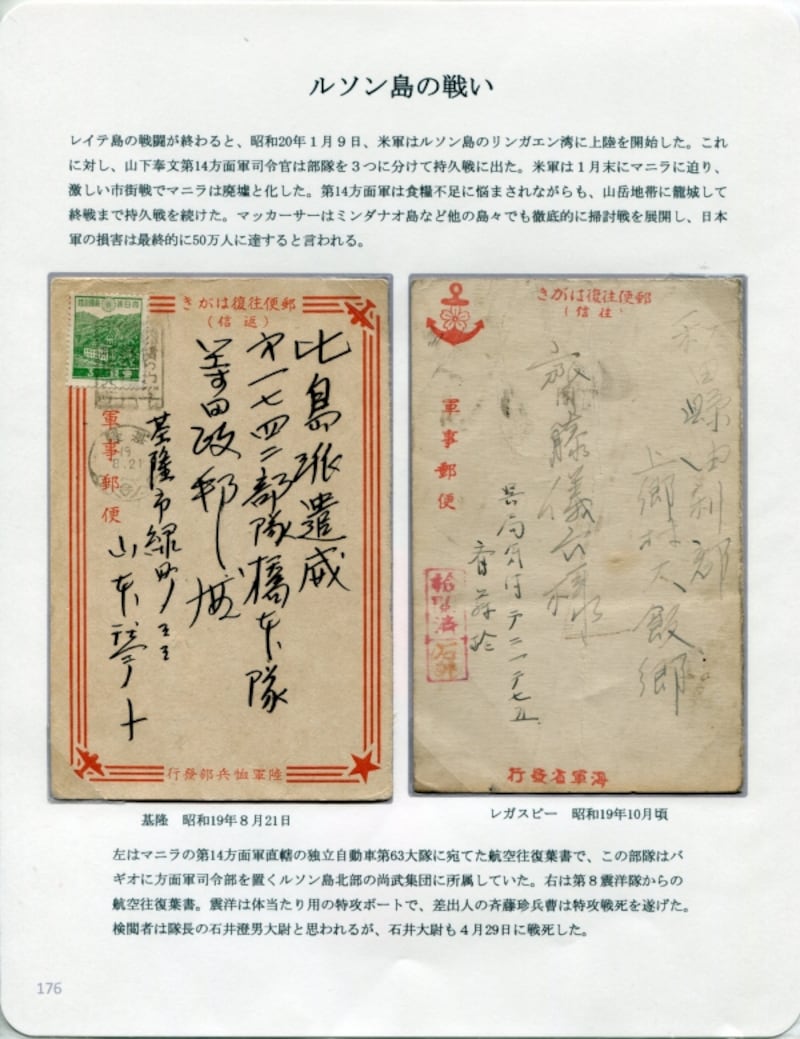 ルソン島の戦い
レイテ島の戦闘が終わると、昭和20年１月９日、米軍はルソン島のリンガエン湾に上陸を開始した。これ
に対し、山下奉文第14方面軍司令官は部隊を３つに分けて持久戦に出た。米軍は１月末にマニラに迫り、
激しい市街戦でマニラは廃墟と化した。第14方面軍は食糧不足に悩まされながらも、山岳地帯に籠城して
終戦まで持久戦を続けた。マッカーサーはミンダナオ島など他の島々でも徹底的に掃討戦を展開し、日本
軍の損害は最終的に50万人に達すると言われる。
きがは復往便郵
(信返)
軍事郵便
比島派遣威
一七四二部隊橋本隊
基隆市緑町
山本
19
8.21
行發部兵恤軍陸
きがは復往便郵
(信往)
軍事郵便
秋田縣由利郡
上郷村大飯郷
齋藤儀
行發省軍海
基隆　昭和19年８月21日
レガスピー　昭和19年10月頃
左はマニラの第14方面軍直轄の独立自動車第63大隊に宛てた航空往復葉書で、この部隊はバ
ギオに方面軍司令部を置くルソン島北部の尚武集団に所属していた。右は第８震洋隊からの
航空往復葉書。震洋は体当たり用の特攻ボートで、差出人の斉藤珍兵曹は特攻戦死を遂げた。
検閲者は隊長の石井澄男大尉と思われるが、石井大尉も４月29日に戦死した。
176